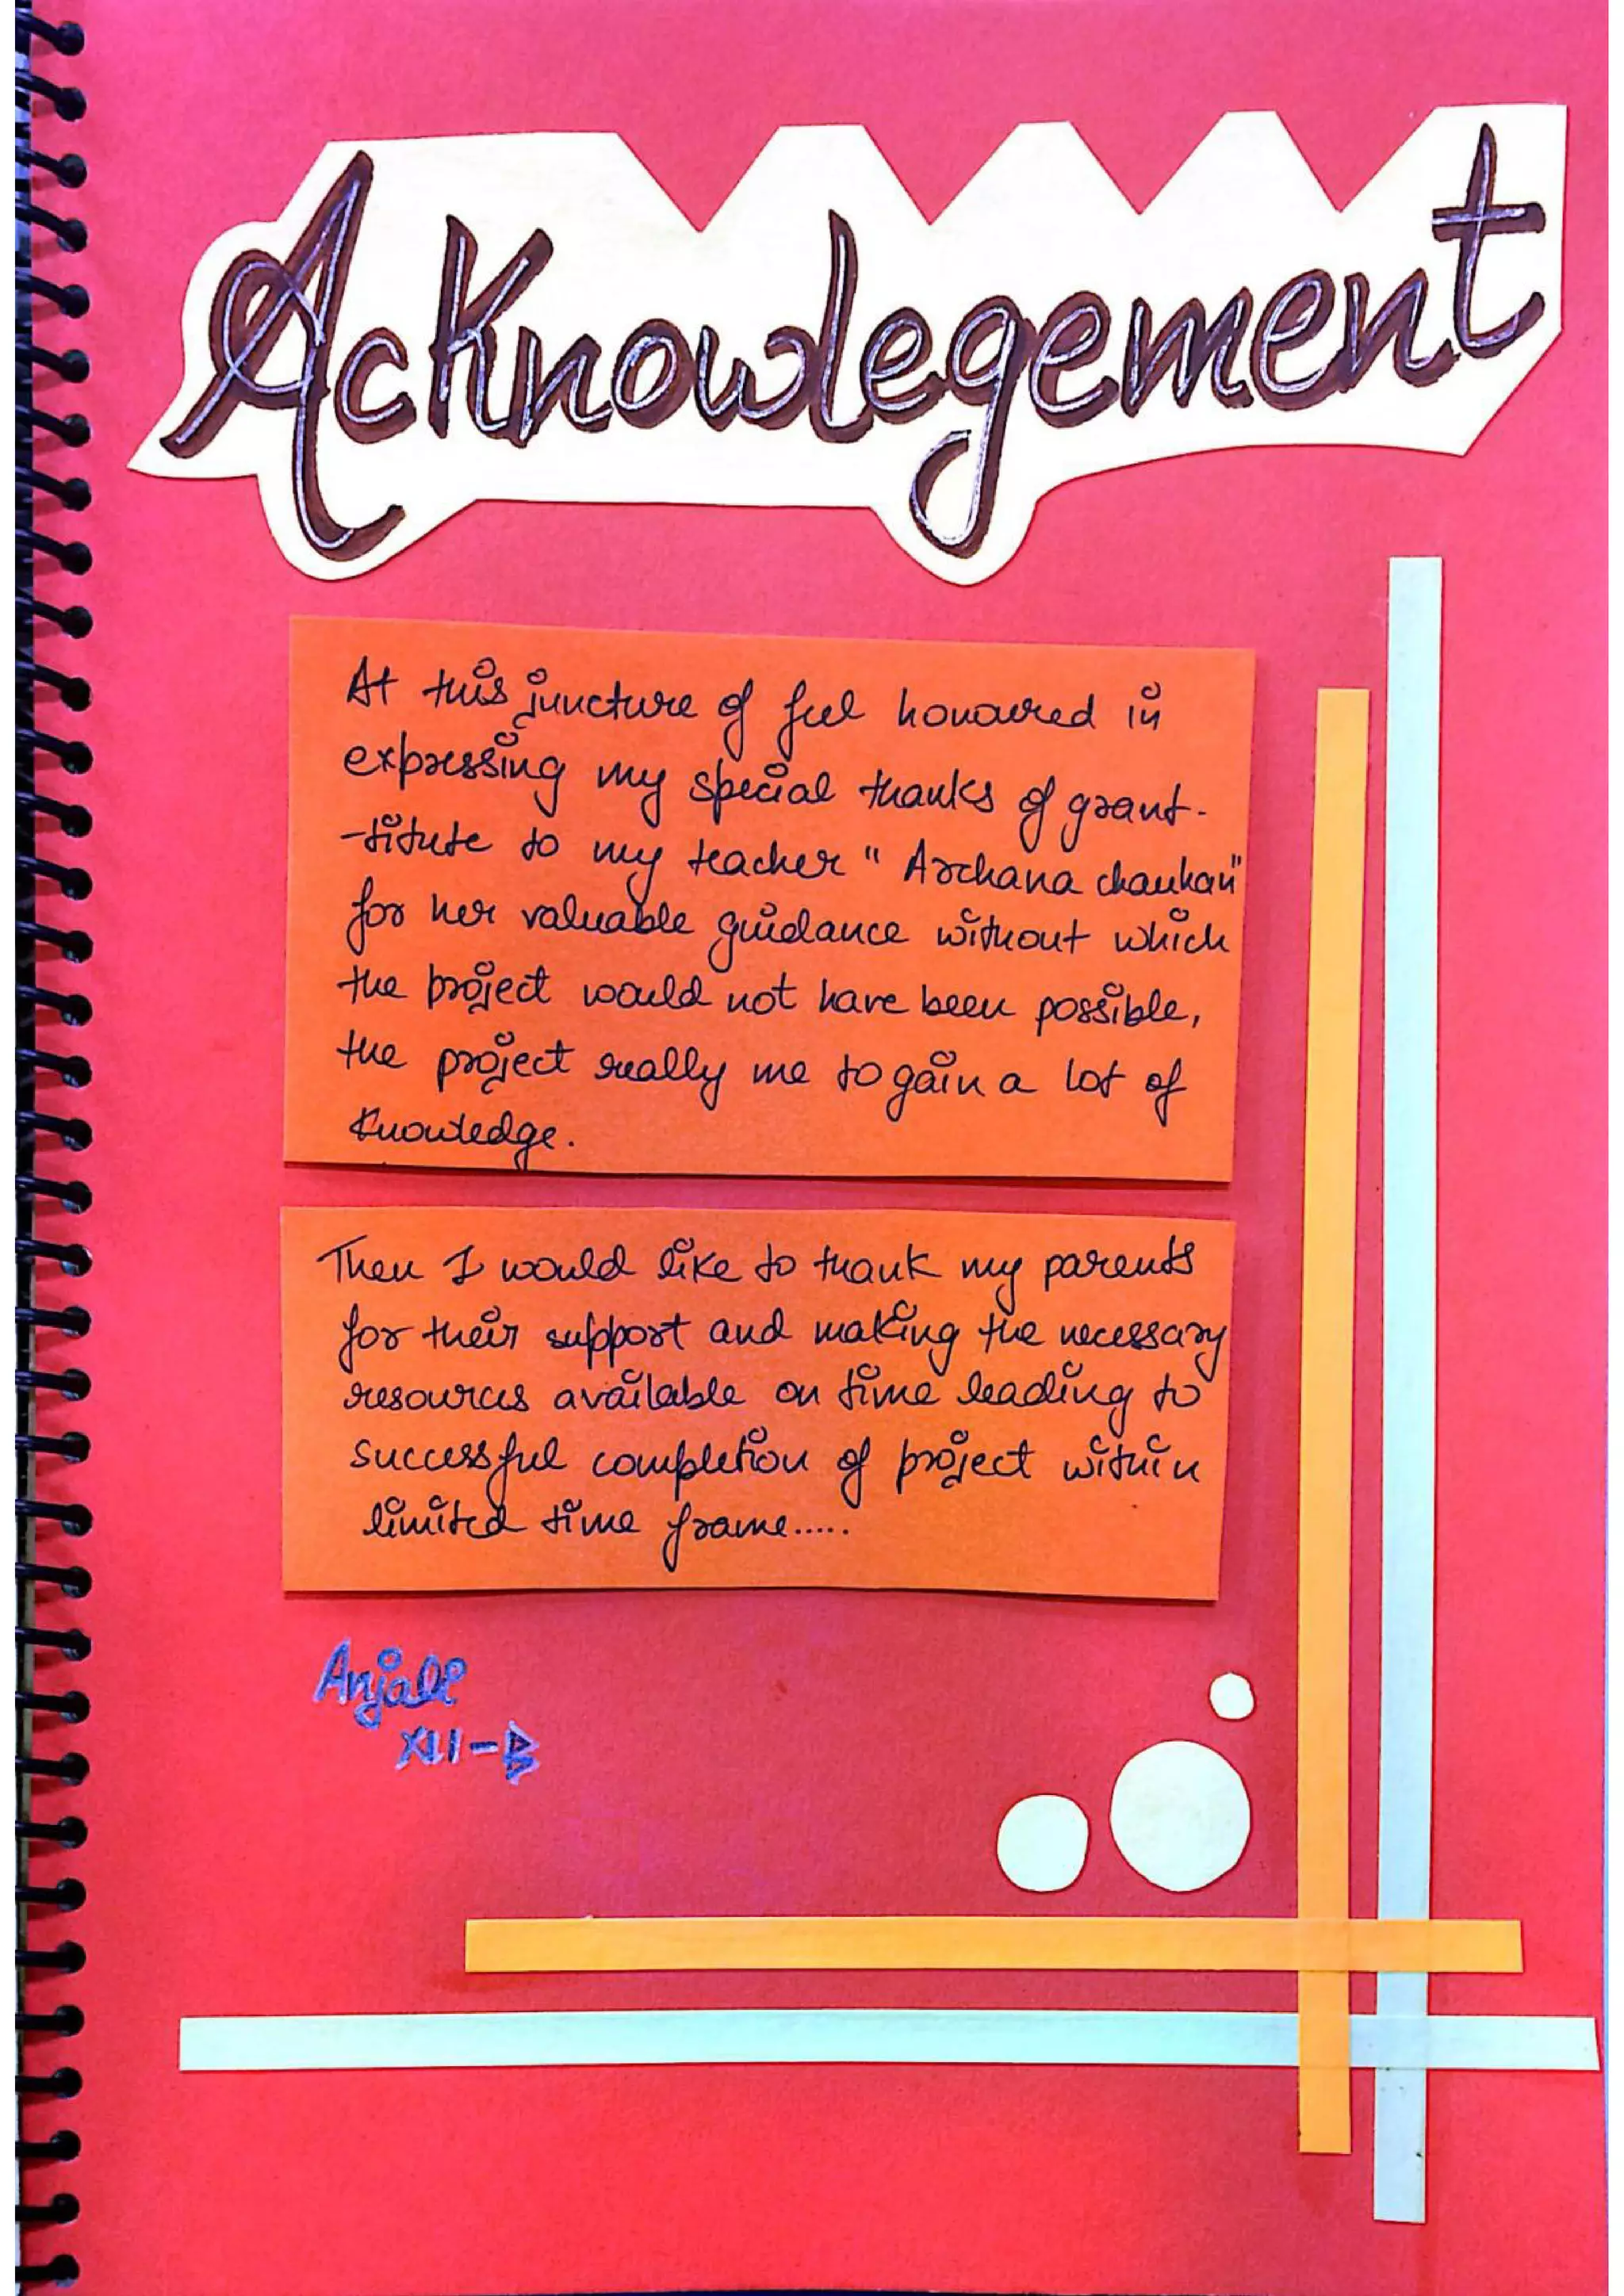 Acknowlegement
At this juncture of feel honoured in
expressing my special thanks of grant-
-titute to my teacher " Archana chauhan"
for her valuable guidance without which
the project would not have been possible,
the project really me to gain a lot of
Knowledge.
Then I would like to thank my parents
for their support and making the necessary
resources available on time leading to
successful completion of project within
limited time frame.....
Anjali
XII-B